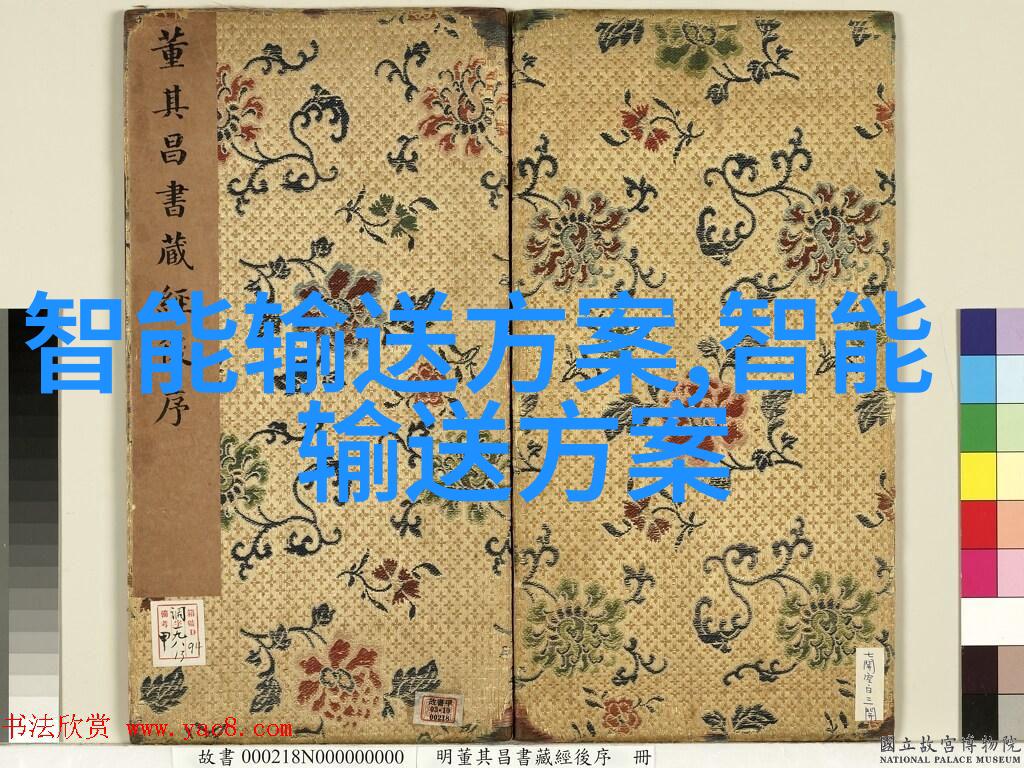 董其昌書藏經後序
智能输送方案,智能
输送方案
七開空白三開
故書甲
03•10
00218
书法欣赏 www.yac8.com
故書 000218N000000000 明董其昌書藏經後序 冊
國立故宮博物院
NATIONAL PALACE MUSEUM